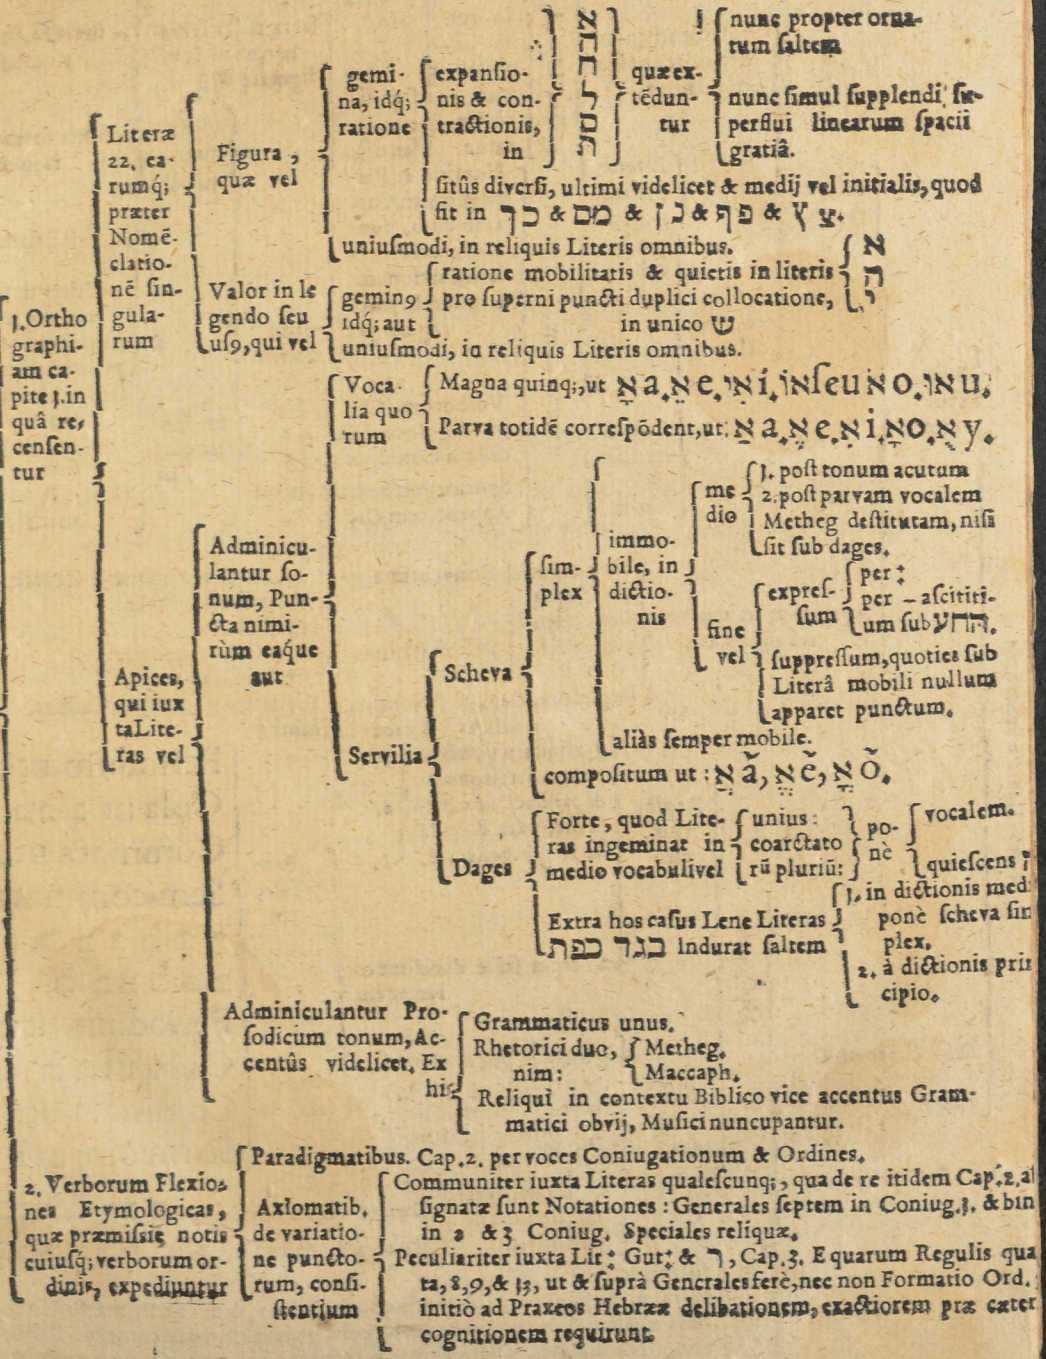 1. Ortho
graphi-
am ca-
pite 1. in
quâ re-
censen-
tur
Literæ
22. ea-
rumq́;
præter
Nomē-
clatio-
nē sin-
gula-
rum
Figura,
quæ vel
gemi-
na, idq́;
ratione
expansio-
nis & con-
tractionis,
in
quæ ex-
tēdun-
tur
nunc propter orna-
tum saltem
nunc simul supplendi su-
perflui linearum spacii
gratiâ.
sitûs diversi, ultimi videlicet & medij vel initialis, quod
fit in ך כ & ם מ & ן נ & ף פ & ץ צ.
uniusmodi, in reliquis Literis omnibus.
Valor in le
gendo seu
us9, qui vel
gemin9
idq́; aut
ratione mobilitatis & quietis in literis
א
ה
י
pro superni puncti duplici collocatione,
in unico ש
uniusmodi, in reliquis Literis omnibus.
Apices,
qui iux
ta Lite-
ras vel
Adminicu-
lantur so-
num, Pun-
cta nimi-
rùm eaq́ue
aut
Voca-
lia quo
rum
Magna quinq;, ut אָ a. אֵ e. אִי í. אוֹ seu אֹ o. אוּ u.
Parva totidē correspōdent, ut: אַ a. אֶ e. אִ i. אָ o. אֻ y.
Servilia
Scheva
sim-
plex
immo-
bile, in
dictio-
nis
me
dio
1. post tonum acutum
2. post parvam vocalem
Metheg destitutam, nisi
sit sub dages.
fine
vel
expres-
sum
per :
per - ascititi-
um sub החע.
suppressum, quoties sub
Literâ mobili nullum
apparet punctum.
aliàs semper mobile.
compositum ut: אֲ ă, אֱ ĕ, אֳ ŏ.
Dages
Forte, quod Lite-
ras ingeminat in
medio vocabuli vel
unius:
coarctato
rū pluriū:
po-
nè
vocalem.
quiescens
Extra hos casus Lene Literas
בגד כפת indurat saltem
1. in dictionis med
ponè scheva sim
plex.
2. à dictionis prin
cipio.
Adminiculantur Pro-
sodicum tonum, Ac-
centûs videlicet. Ex
his
Grammaticus unus.
Rhetorici duo,
nim:
Metheg.
Maccaph.
Reliqui in contextu Biblico vice accentus Gram-
matici obvij, Musici nuncupantur.
2. Verborum Flexio-
nes Etymologicas,
quæ præmissis notis
cuiusq́; verborum or-
dinis, expediuntur
Paradigmatibus. Cap. 2. per voces Coniugationum & Ordines.
Axiomatib.
de variatio-
ne puncto-
rum, consi-
stentium
Communiter iuxta Literas qualescunq;, qua de re itidem Cap. 2. as
signatæ sunt Notationes: Generales septem in Coniug. 1. & bin
in 2 & 3 Coniug. Speciales reliquæ.
Peculiariter iuxta Lit: Gut: & ר, Cap. 3. E quarum Regulis qua
ta, 8, 9, & 13, ut & suprà Generales ferè, nec non Formatio Ord.
initiò ad Praxeos Hebrææ delibationem, exactiorem præ cæter
cognitionem requirunt.